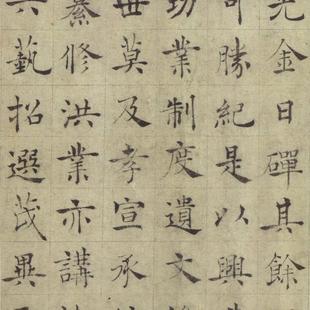 光金日磾其餘
可勝紀是以興
功業制度遺文
世莫及孝宣承
纂修洪業亦講
六藝招選茂異